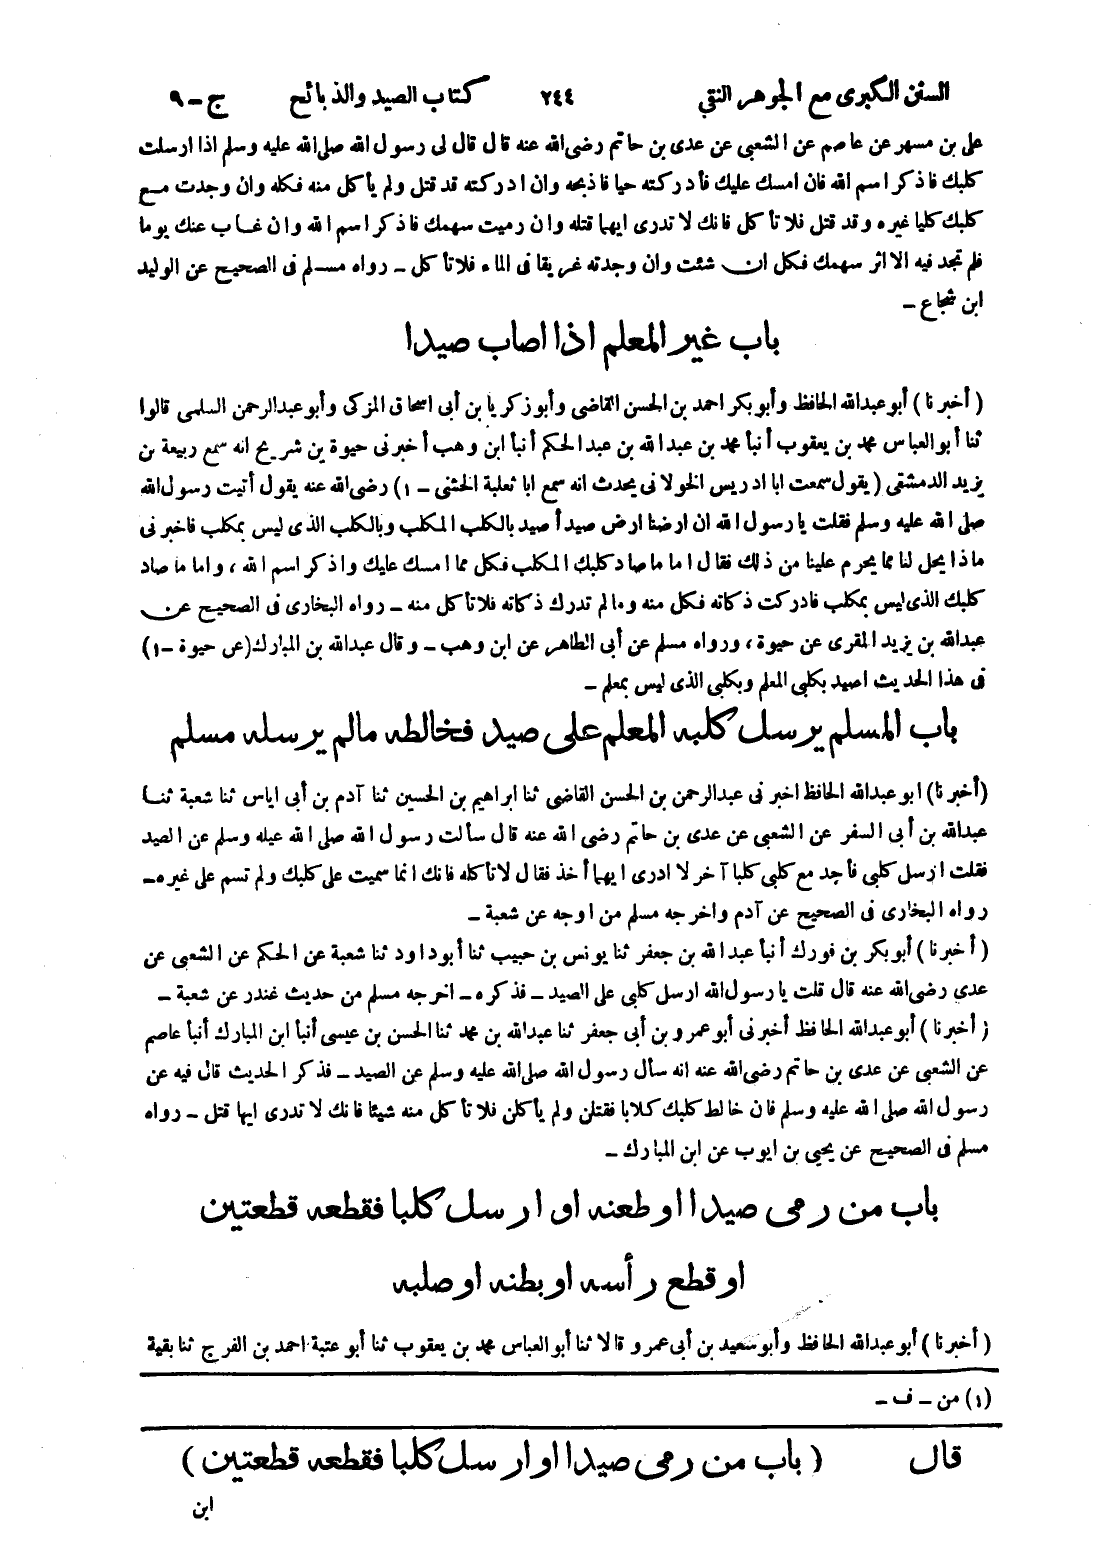 السنن الكبرى مع الجوهر النقي ٢٤٤ كتاب الصيد والذبائح ج ـ ٩
على بن مسهر عن عاصم عن الشعبى عن عدى بن حاتم رضى الله عنه قال قال لى رسول الله صلى الله عليه وسلم اذا ارسلت
كلبك فاذكر اسم الله فان امسك عليك فأدركته حيا فاذبحه وان ادركته قد قتل ولم يأكل منه فكله وان وجدت مع
كلبك كلبا غيره وقد قتل فلا تأكل فانك لا تدرى ايهما قتله وان رميت سهمك فاذكر اسم الله وان غاب عنك يوما
فلم تجد فيه الا اثر سهمك فكل ان شئت وان وجدته غريقا فى الماء فلا تأكل ـ رواه مسلم فى الصحيح عن الوليد
ابن شجاع ـ
باب غير المعلم اذا اصاب صيدا
( أخبرنا ) أبو عبدالله الحافظ وأبو بكر احمد بن الحسن القاضى وأبو زكريا بن أبى اسحاق المزكى وأبو عبدالرحمن السلمى قالوا
ثنا أبو العباس محمد بن يعقوب أنبأ محمد بن عبدالله بن عبد الحكم أنبأ ابن وهب أخبرنى حيوة بن شريح انه سمع ربيعة بن
يزيد الدمشقى ( يقول سمعت ابا ادريس الخولانى يحدث انه سمع ابا ثعلبة الخشنى ـ ١) رضى الله عنه يقول أتيت رسول الله
صلى الله عليه وسلم فقلت يا رسول الله ان ارضنا ارض صيد أصيد بالكلب المكلب وبالكلب الذى ليس بمكلب فاخبرنى
ماذا يحل لنا مما يحرم علينا من ذلك فقال اما ما صاد كلبك المكلب فكل مما امسك عليك واذكر اسم الله ، واما ما صاد
كلبك الذى ليس بمكلب فادركت ذكاته فكل منه وما لم تدرك ذكاته فلا تأكل منه ـ رواه البخارى فى الصحيح عن
عبدالله بن يزيد المقرى عن حيوة ، ورواه مسلم عن أبى الطاهر عن ابن وهب ـ وقال عبدالله بن المبارك (عن حيوة ـ ١)
فى هذا الحديث اصيد بكلبى المعلم وبكلبى الذى ليس بمعلم ـ
باب المسلم يرسل كلبه المعلم على صيد فخالطه مالم يرسله مسلم
(أخبرنا) ابو عبدالله الحافظ اخبرنى عبدالرحمن بن الحسن القاضى ثنا ابراهيم بن الحسين ثنا آدم بن أبى اياس ثنا شعبة ثنا
عبدالله بن أبى السفر عن الشعبى عن عدى بن حاتم رضى الله عنه قال سألت رسول الله صلى الله عيله وسلم عن الصيد
فقلت ارسل كلبى فأجد مع كلبى كلبا آخر لا ادرى ايهما أخذ فقال لا تأكله فانك انما سميت على كلبك ولم تسم على غيره ـ
رواه البخارى فى الصحيح عن آدم واخرجه مسلم من اوجه عن شعبة ـ
( أخبرنا ) أبو بكر بن فورك أنبأ عبدالله بن جعفر ثنا يونس بن حبيب ثنا أبو داود ثنا شعبة عن الحكم عن الشعبى عن
عدى رضى الله عنه قال قلت يا رسول الله ارسل كلبى على الصيد ـ فذكره ـ اخرجه مسلم من حديث غندر عن شعبة ـ
( أخبرنا ) أبو عبدالله الحافظ أخبرنى أبو عمرو بن أبى جعفر ثنا عبدالله بن محمد ثنا الحسن بن عيسى أنبأ ابن المبارك أنبأ عاصم
عن الشعبى عن عدى بن حاتم رضى الله عنه انه سأل رسول الله صلى الله عليه وسلم عن الصيد ـ فذكر الحديث قال فيه عن
رسول الله صلى الله عليه وسلم فان خالط كلبك كلابا فقتلن ولم يأكلن فلا تأكل منه شيئا فانك لا تدرى ايها قتل ـ رواه
مسلم فى الصحيح عن يحيى بن ايوب عن ابن المبارك ـ
باب من رمى صيدا او طعنه او ارسل كلبا فقطعه قطعتين
او قطع رأسه او بطنه او صلبه
( أخبرنا ) أبو عبدالله الحافظ وأبو سعيد بن أبى عمرو قالا ثنا أبو العباس محمد بن يعقوب ثنا أبو عتبة احمد بن الفرج ثنا بقية
(١) من ـ ف ـ
قال ( باب من رمى صيدا او ارسل كلبا فقطعه قطعتين )
ابن